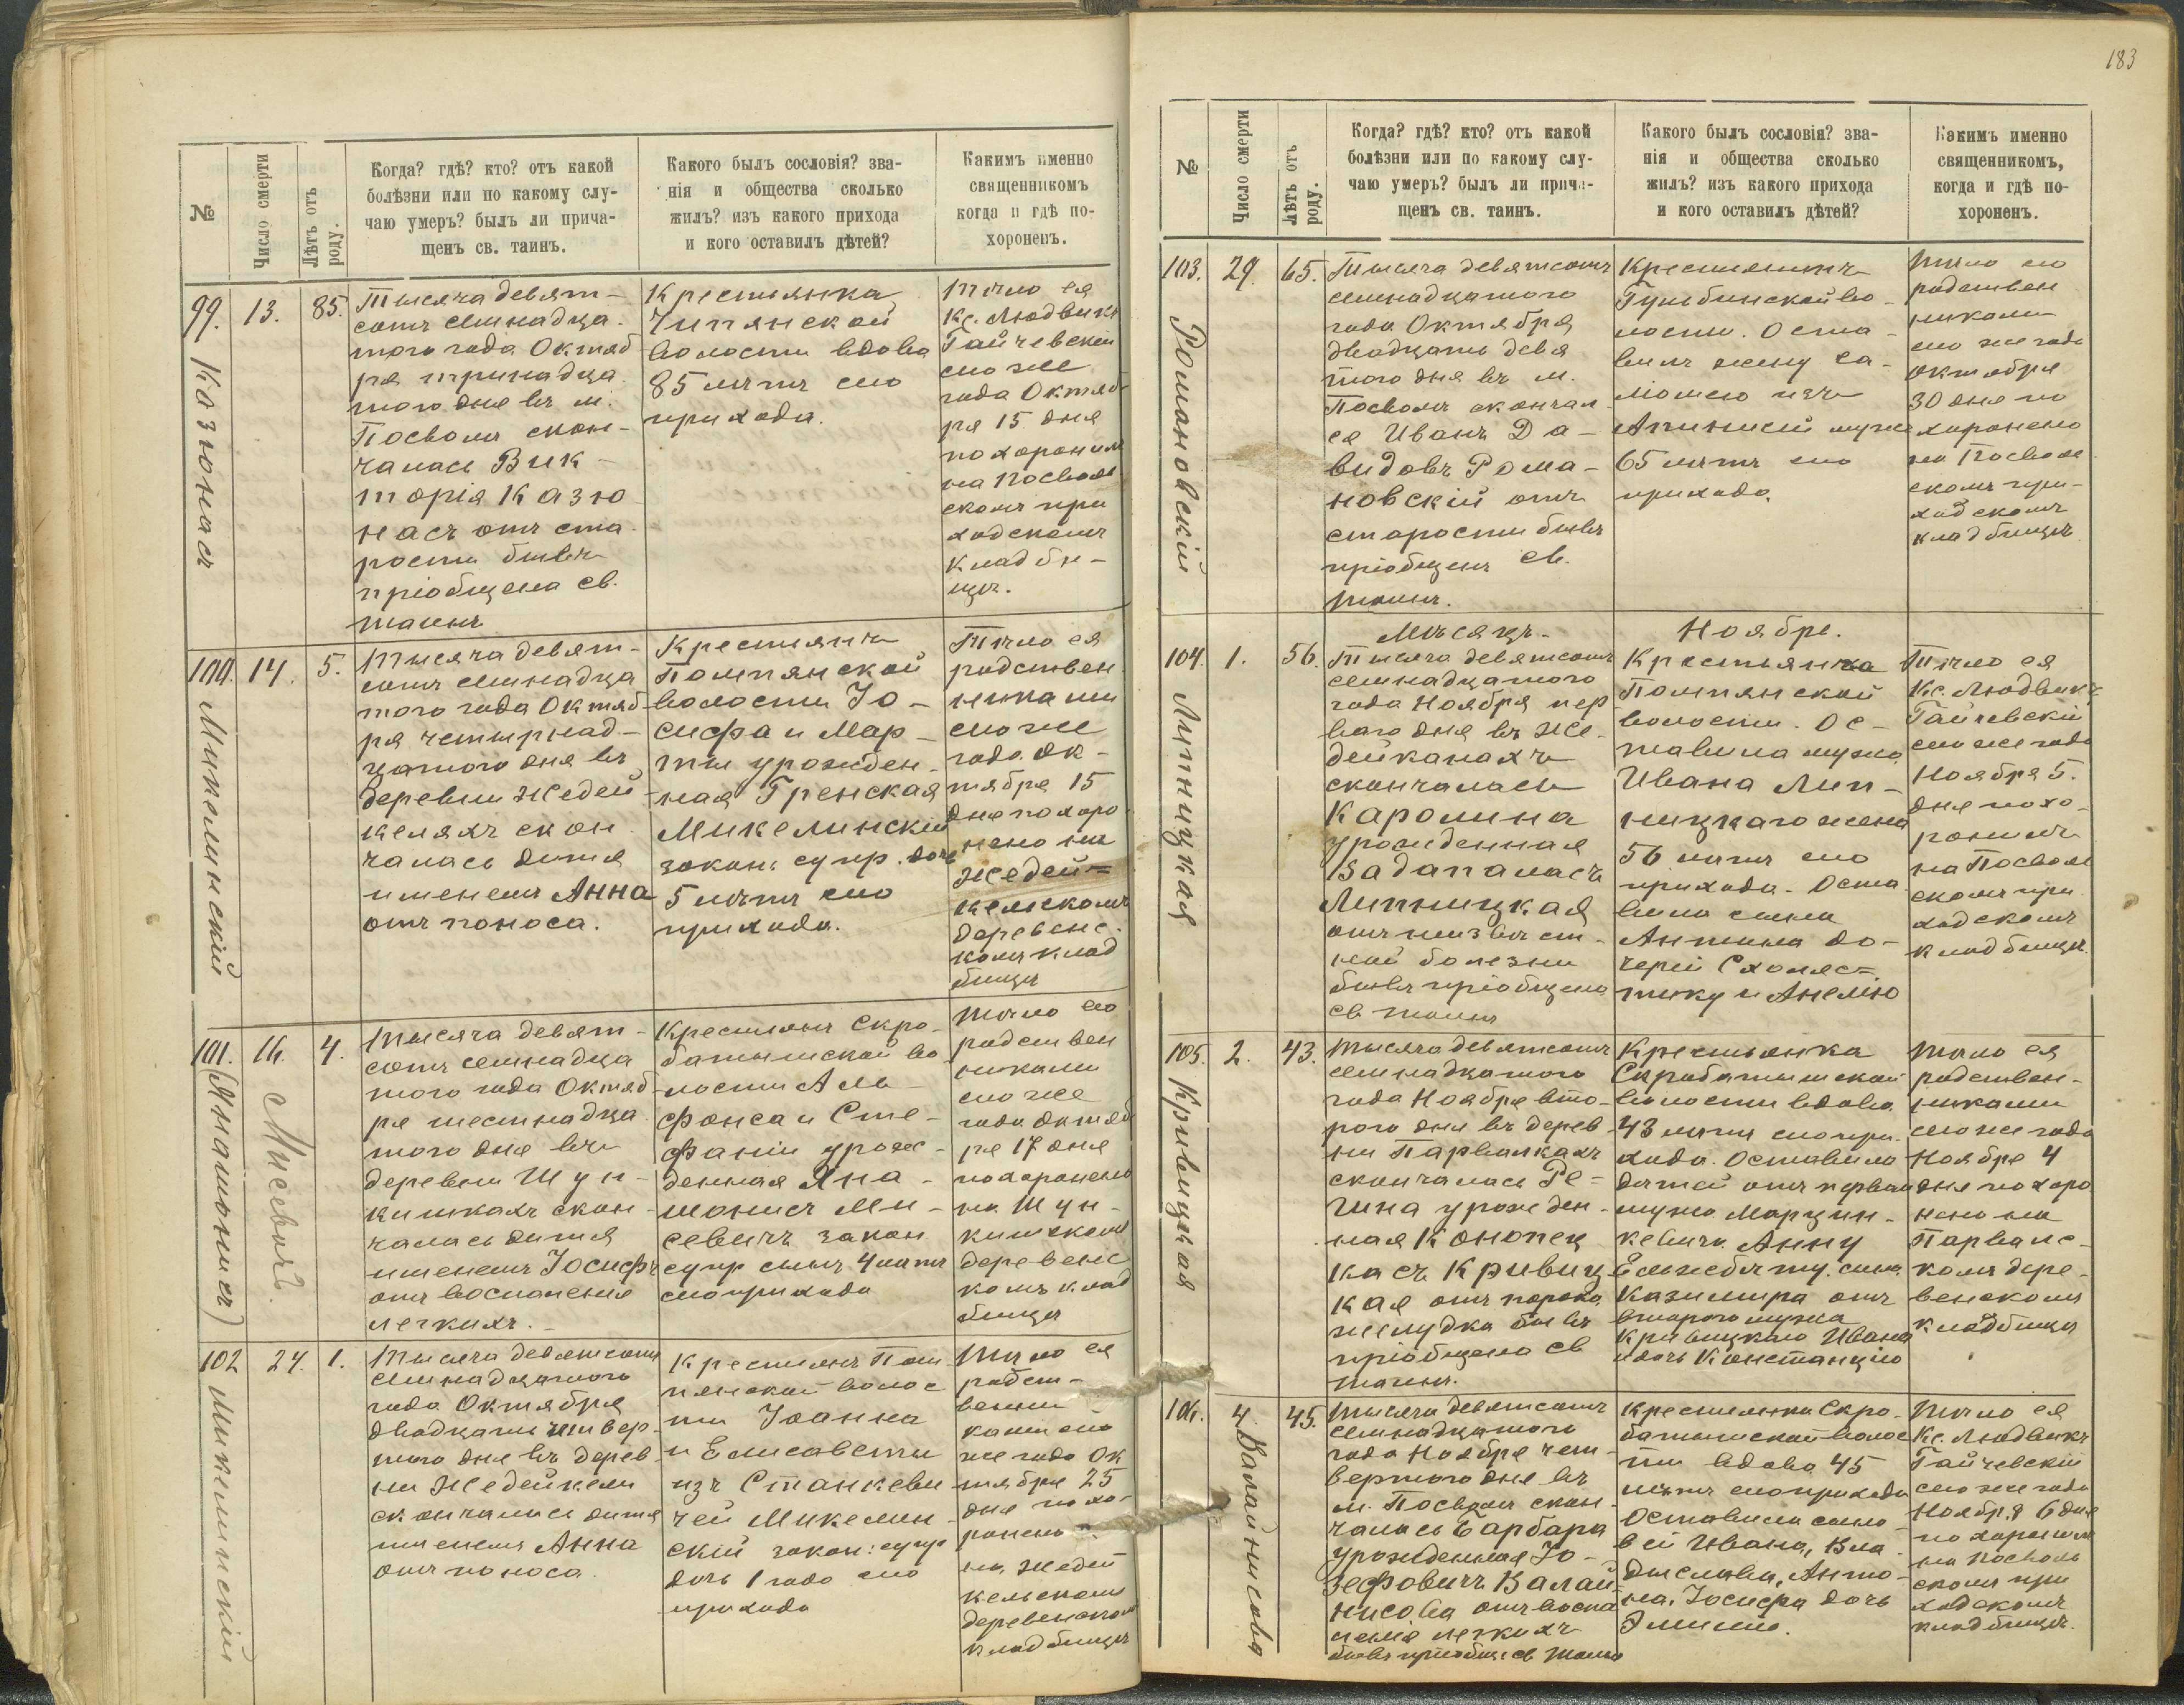 183
№
Число смерти
Лѣтъ отъ роду.
Когда? гдѣ? кто? отъ какой
болѣзни или по какому слу-
чаю умеръ? былъ ли прича-
щенъ св. таинъ.
Какого былъ сословія? зва-
нія и общества сколько
жилъ? изъ какого прихода
и кого оставилъ дѣтей?
Какимъ именно
священникомъ
когда и гдѣ по-
хороненъ.
99. 13. 85.
Казюнасъ
Тысяча девят-
сотъ семнадца-
того года Октяб
ря тринадца
того дня въ м.
Посволь скон-
чалась Вик-
торія Казю
насъ отъ ста-
рости бывъ
пріобщена св.
таинъ
Крестьянка
Чипянской
волости вдова
85 летъ сего
прихода.
Тѣло ея
Кс. Людвикъ
Гайчевскій
сего же
года Октяб-
ря 15 дня
похоронилъ
на Посволь
скомъ при
ходскомъ
кладби-
щѣ.
100. 14. 5.
Микелинскій
Тысяча девят-
сотъ семнадца
того года Октяб-
ря четырнад-
цатого дня въ
деревни Жедей
келяхъ скон
чалась дитя
именемъ Анна
отъ поноса.
Крестьянъ
Помпянской
волости Іо-
сифа и Мар-
ты урожден-
ная Гренская
Микелинскій
закон: супр. дочь
5 лѣтъ сего
прихода.
Тѣло ея
родствен
никами
сего же
года Ок-
тября 15
дня похоро
нено на
Жедей=
кельскомъ
деревенс.
комъ клад
бищѣ
101. 16. 4.
(Янамонисъ)
Мисевичъ.
Тысяча девят-
сотъ семнадца
того года Октяб
ря шестнадца
того дня въ
деревни Шун-
кишкахъ скон-
чалась дитя
именемъ Іосифъ
отъ воспаленія
легкихъ.
Крестьянъ Скро-
батышской во
лости Аль-
фонса и Сте-
фаніи урож-
денная Яна-
монисъ Ми-
севичъ закон
супр сынъ 4 летъ
сего прихода
Тѣло его
родствен
никами
сего же
года Октяб
ря 17 дня
похоронено
на Шун-
кишскомъ
деревенс
комъ клад
бищѣ
102 24. 1.
Микелинскій
Тысяча девятсотъ
семнадцатого
года Октября
двадцать четвер-
того дня въ дерев
ни Жедейкели
скончалась дитя
именемъ Анна
отъ поноса.
Крестьянъ Пом
пянской волос
ти Іоанна
и Елисаветы
изъ Станкеви
чей Микелин-
скій закон: супр
дочь 1 года сего
прихода
Тѣло ея
родст-
венни
ками сего
же года Ок
тября 25
дня похо-
ронено
на Жедей
кельскомъ
деревенскомъ
кладбищѣ
№
Число смерти
Лѣтъ отъ роду.
Когда? гдѣ? кто? отъ какой
болѣзни или по какому слу-
чаю умеръ? былъ ли прича-
щенъ св. таинъ.
Какого былъ сословія? зва-
нія и общества сколько
жилъ? изъ какого прихода
и кого оставилъ дѣтей?
Какимъ именно
священникомъ,
когда и гдѣ по-
хороненъ.
103. 29. 65.
Романовскій
Тысяча девятсотъ
семнадцатого
года Октября
двадцать девя
того дня въ м.
Посволь скончал
ся Иванъ Да-
видовъ Рома-
новскій отъ
старости бывъ
пріобщенъ св.
таинъ.
Крестьянинъ
волости. Оста-
вилъ жену Са-
65 летъ сего
прихода.
Тѣло его
родствен
никами
сего же года
Октября
30 дня по
хоронено
на Посволь
скомъ при-
ходскомъ
кладбищѣ
Мѣсяцъ. Ноябрь.
104. 1. 56.
Липницкая
Тысяча девятсотъ
семнадцатого
года Ноября пер
ваго дня въ Же-
дейканахъ
скончалась
Каролина
урожденная
Задапаласъ
Липницкая
отъ неизвѣст-
ной болезни
бывъ пріобщена
св таинъ
Крестьянка
Помпянской
волости. Ос-
тавила мужа
Ивана Лип-
ницкаго жена
56 летъ сего
прихода. Оста
вила сына
Антона до-
черей Схоляс=
тику и Анелю
Тѣло ея
Кс. Людвикъ
Гайчевскій
сего же года
Ноября 5.
дня похо-
ронилъ
на Посволь
скомъ при
ходскомъ
кладбищѣ.
105. 2. 43.
Кривицкая
Тысяча девятсотъ
семнадцатого
года Ноября вто-
рого дня въ дерев
ни Парвалкахъ
скончалась Ре=
гина урожден-
ная Конопец
касъ Кривиц
кая отъ порока
желудка бывъ
пріобщена св
таинъ.
Крестьянка
Скробатышской
волости вдова
43 летъ сего при-
хода. Оставила
дѣтей отъ перваго
мужа Марцин-
кевича Анну
Елисбету. сына
Казимира отъ
второго мужа
Кривицкаго Ивана
и дочь Констанцію
Тѣло ея
родствен-
никами
сего же года
Ноября 4
дня похоро
нено на
Парвалс-
комъ дере-
венскомъ
кладбищѣ
106. 4. 45.
Валайнисова
Тысяча девятсотъ
семнадцатого
года Ноября чет-
вертого дня въ
м. Посволь скон-
чалась Барбара
урожденная Ю-
зефовичъ Валай-
нисова отъ воспа
ленія легкихъ
бывъ пріобщ: св таинъ
Крестьянка Скро-
батышской волос
ти вдова 45
летъ сего прихода
Оставила сыно-
вей Ивана, Вла-
дислава, Анто-
на, Іосифа дочь
Эмилію.
Тѣло ея
Кс. Людвикъ
Гайчевскій
сего же года
Ноября 6 дня
похоронилъ
на Посволь
скомъ при
ходскомъ
кладбищѣ.